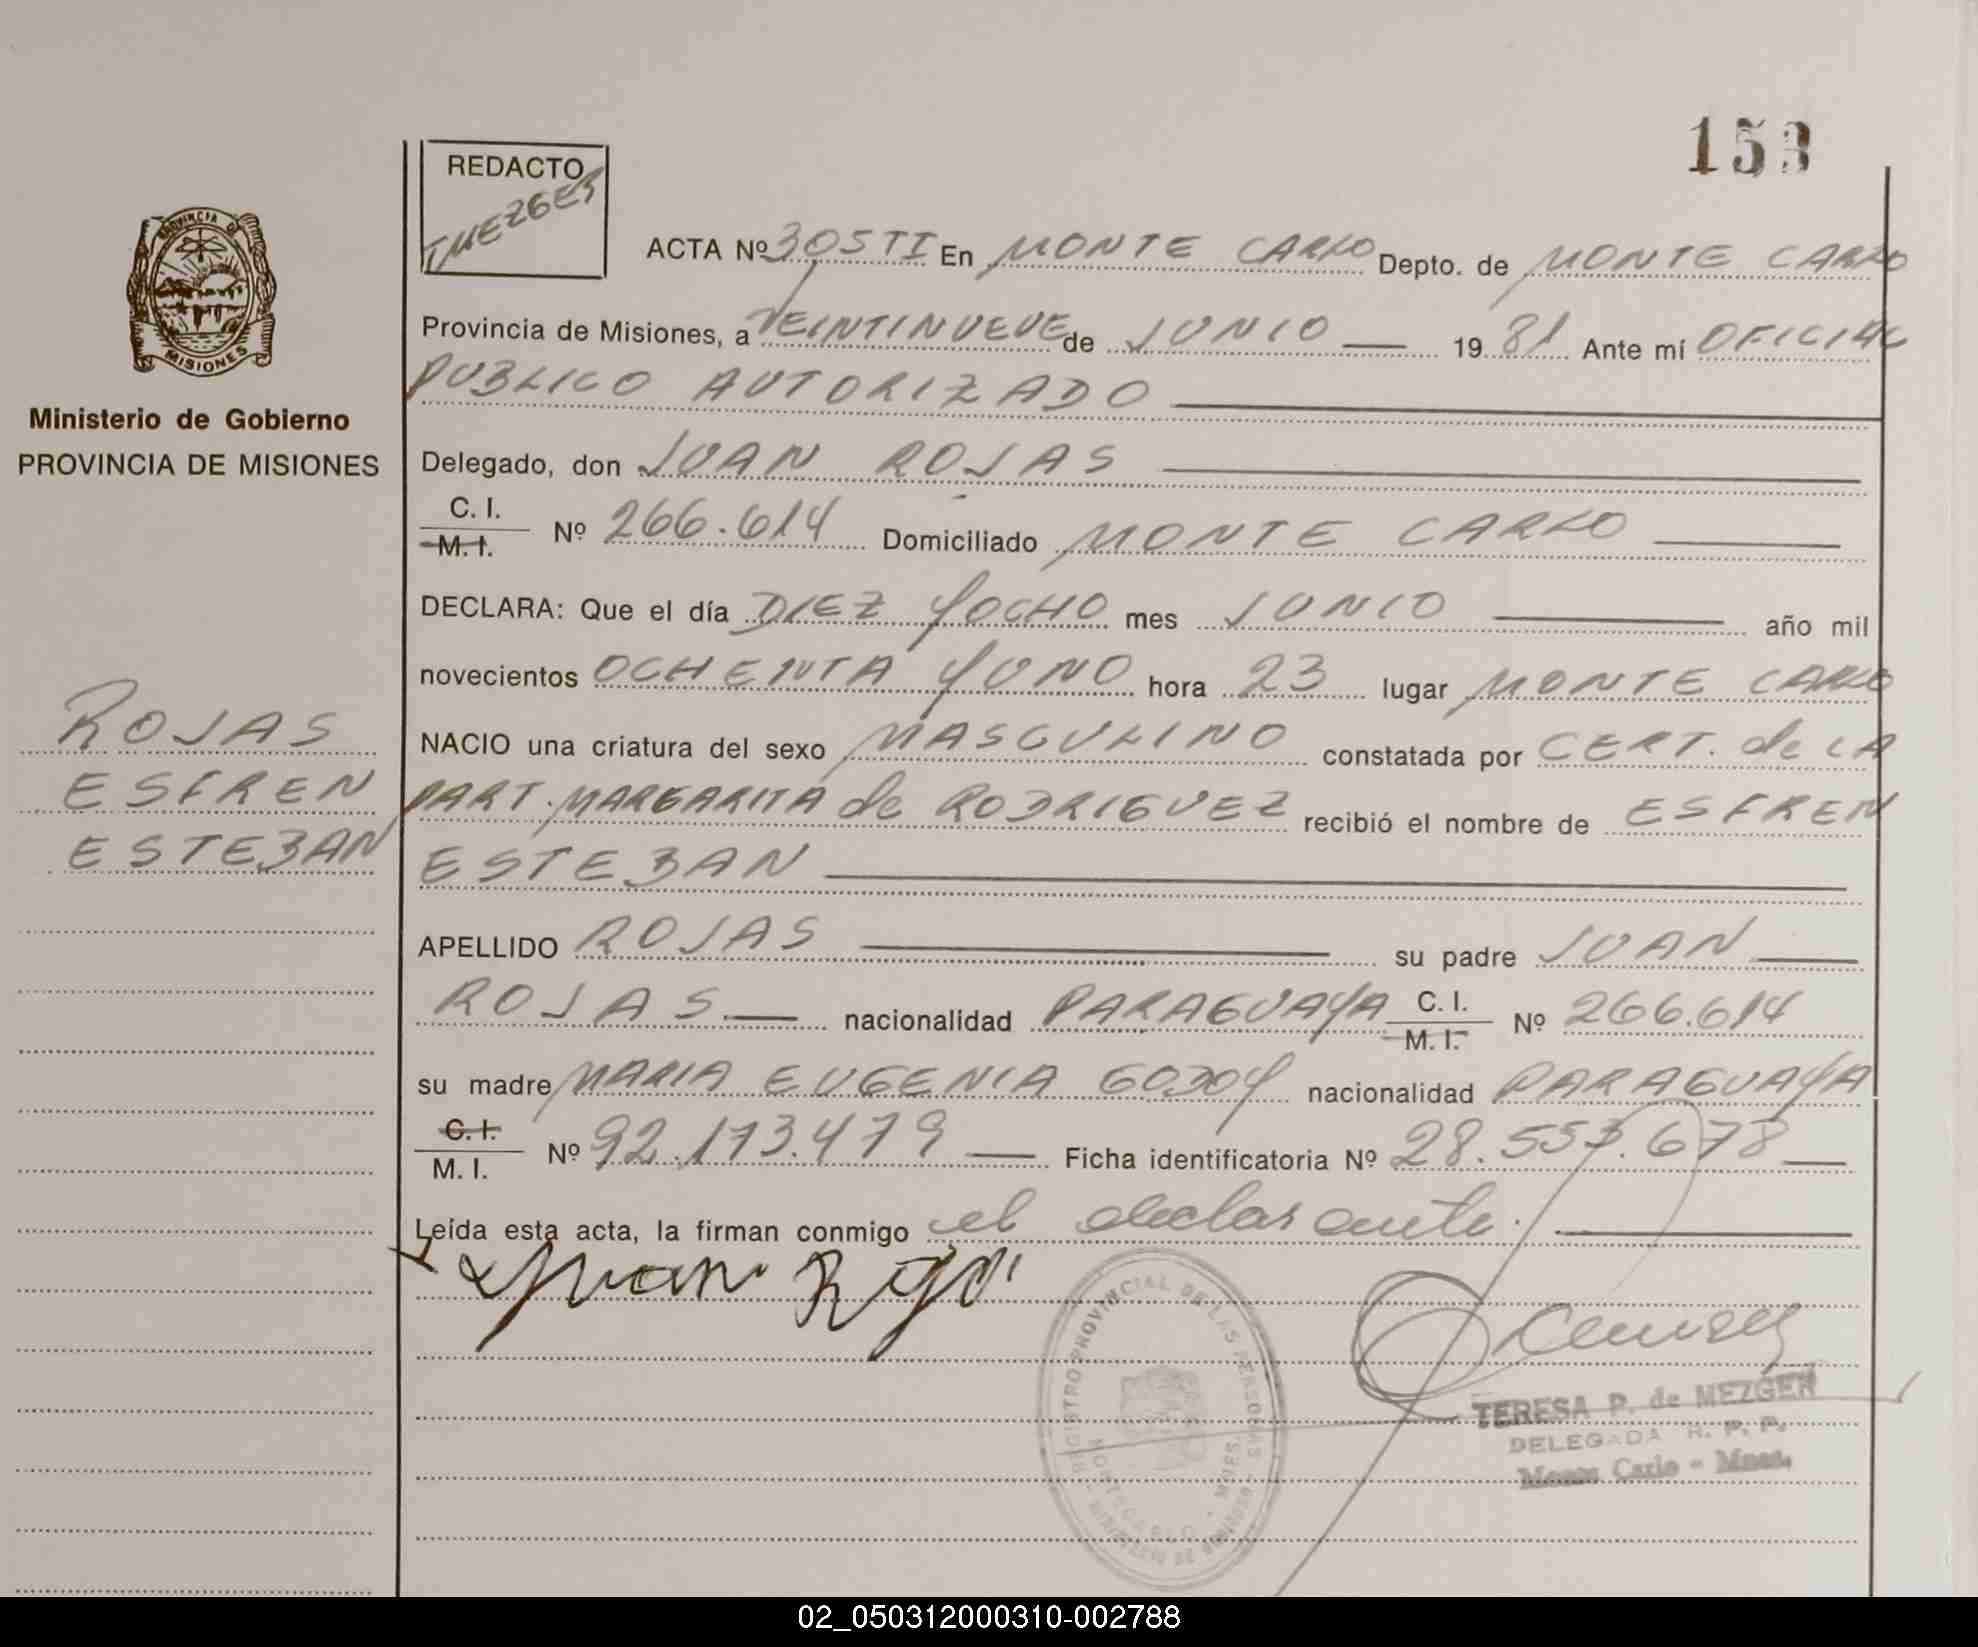 153
REDACTO
TMEZGER
ACTA Nº 305TI En MONTE CARLO Depto. de MONTE CARLO
Provincia de Misiones, a VEINTINUEVE de JUNIO 19 81 Ante mí OFICIAL
PUBLICO AUTORIZADO
PROVINCIA DE MISIONES
Ministerio de Gobierno
PROVINCIA DE MISIONES
Delegado, don JUAN ROJAS
C. I.
M. I. Nº 266.614 Domiciliado MONTE CARLO
DECLARA: Que el día DIEZ YOCHO mes JUNIO año mil
novecientos OCHENTA YUNO hora 23 lugar MONTE CARLO
ROJAS
ESFREN
ESTEBAN
NACIO una criatura del sexo MASCULINO constatada por CERT. de LA
PART. MARGARITA de RODRIGUEZ recibió el nombre de ESFREN
ESTEBAN
APELLIDO ROJAS su padre JUAN
ROJAS nacionalidad PARAGUAYA C. I.
M. I. Nº 266.614
su madre MARIA EUGENIA GODOY nacionalidad PARAGUAYA
C. I.
M. I. Nº 92.173.479 Ficha identificatoria Nº 28.553.678
Leída esta acta, la firman conmigo el declarante.
Juan Rojas
REGISTRO PROVINCIAL DE LAS PERSONAS
MONTECARLO - MNES.
TERESA P. de MEZGER
DELEGADA R. P. P.
Monte Carlo - Mnes.
02_050312000310-002788